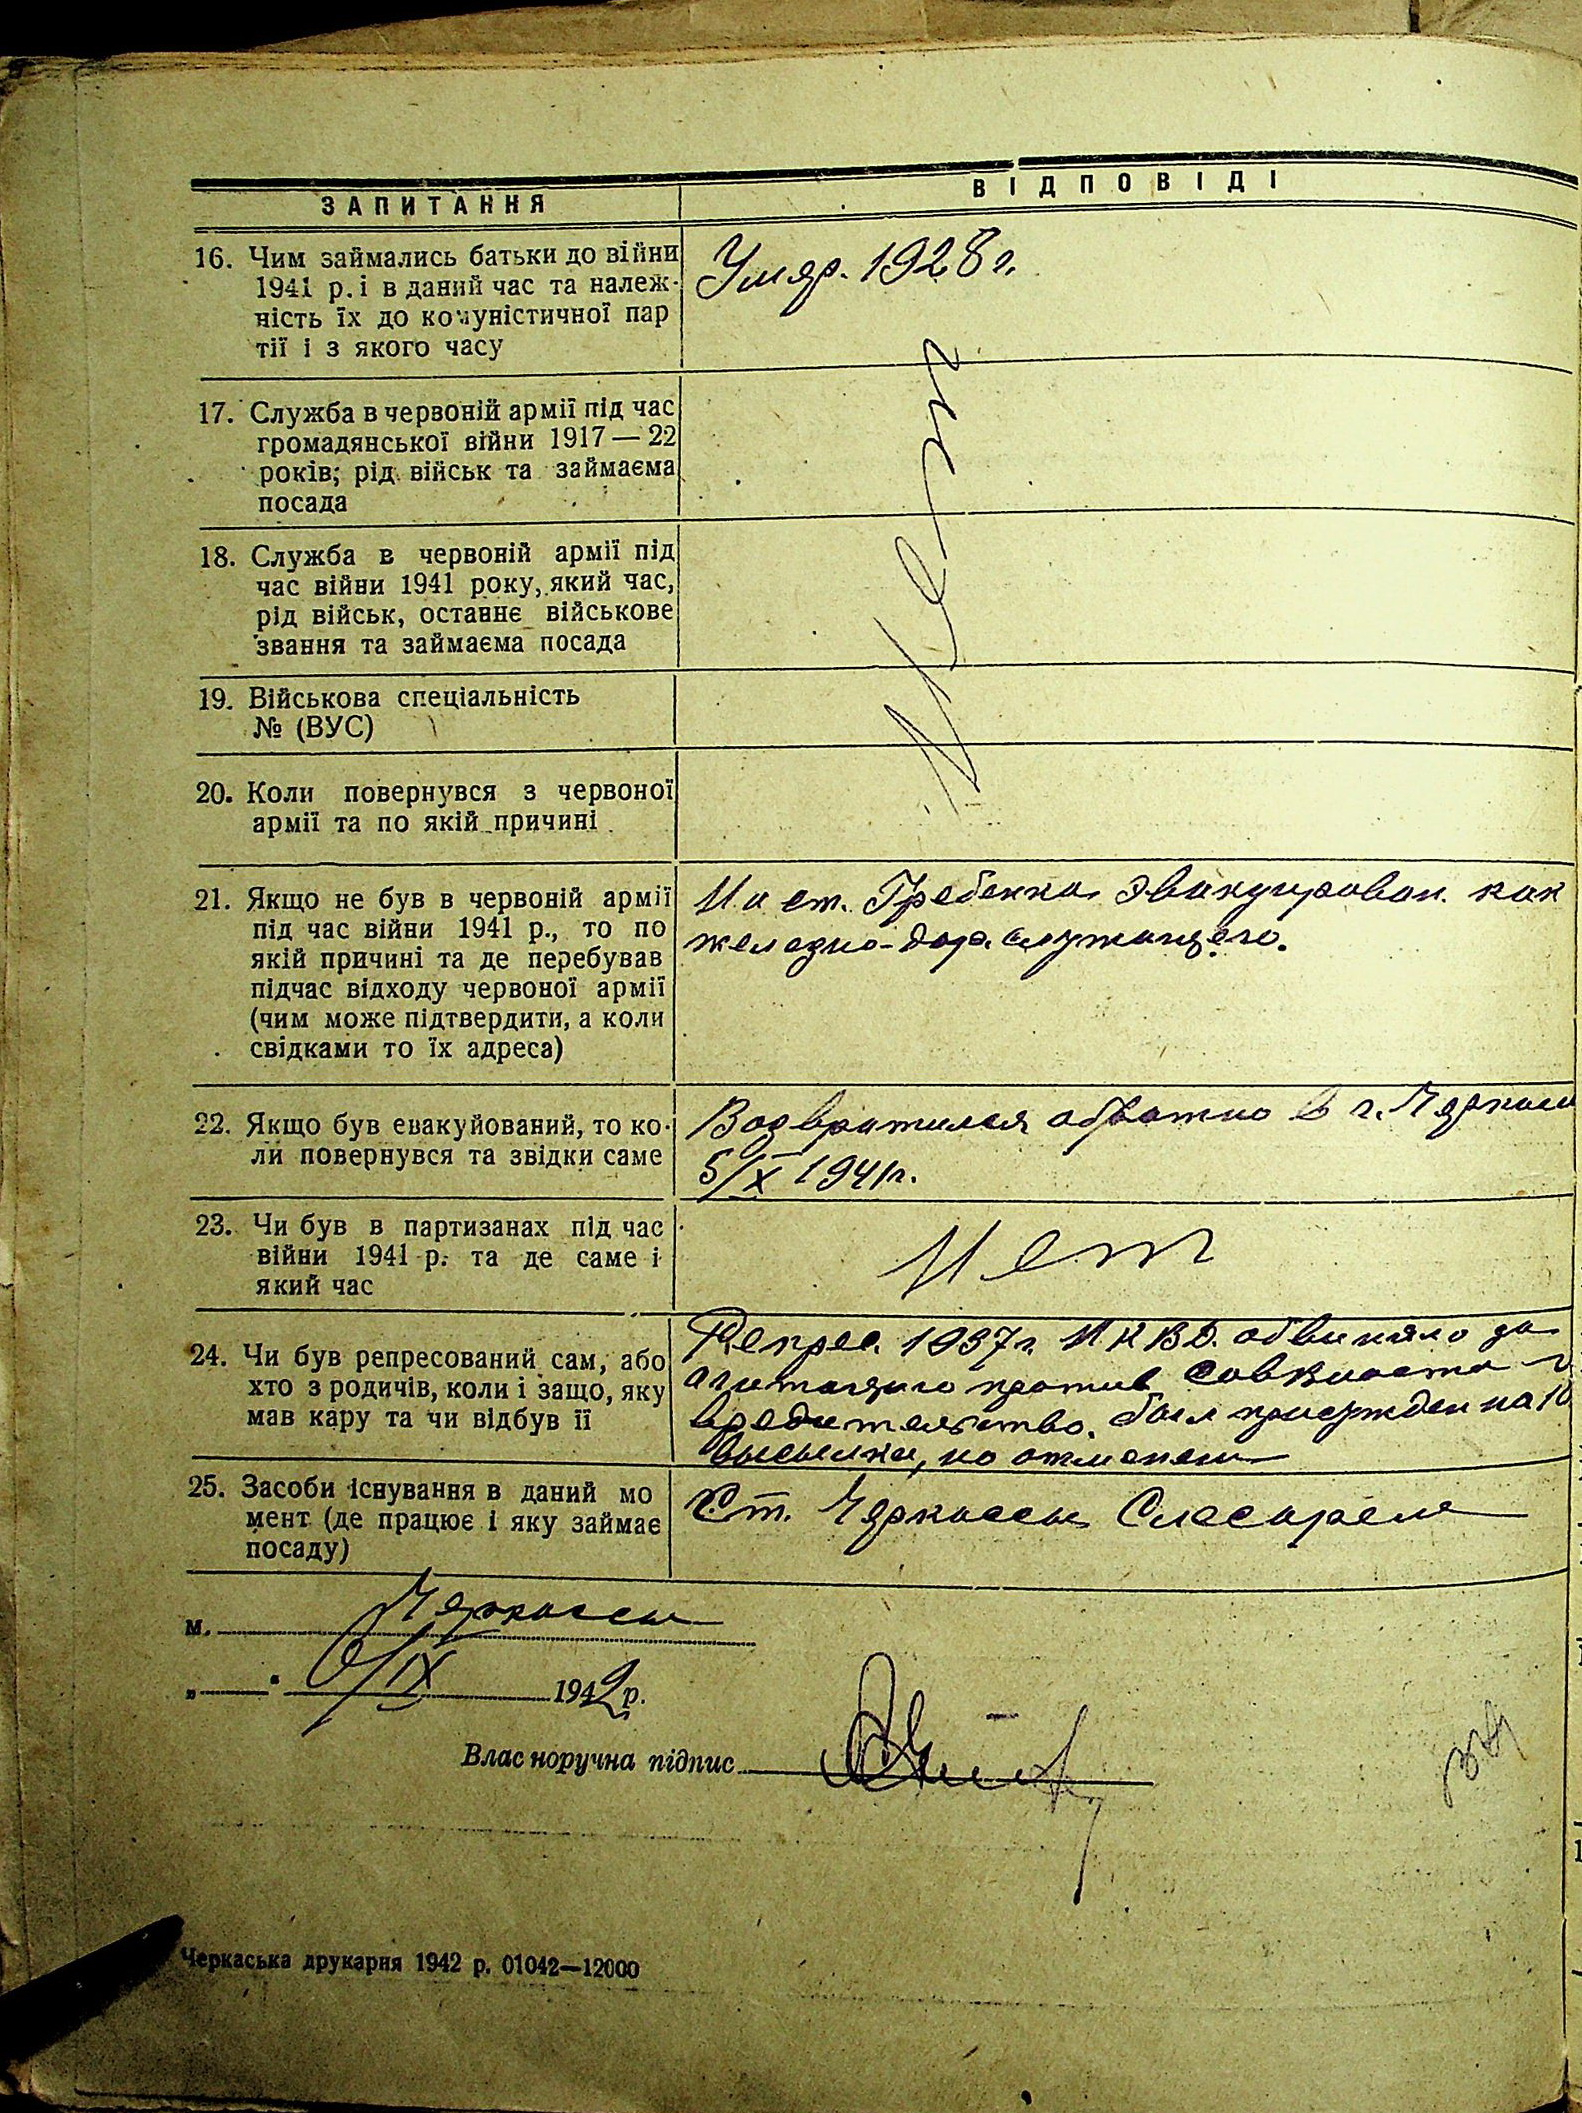 ЗАПИТАННЯ
ВІДПОВІДІ
16. Чим займались батьки до війни
1941 р. і в даний час та належ-
ність їх до комуністичної пар
тії і з якого часу
Умяр. 1928 г.
17. Служба в червоній армії під час
громадянської війни 1917 — 22
років; рід військ та займаєма
посада
18. Служба в червоній армії під
час війни 1941 року, який час,
рід військ, останнє військове
звання та займаєма посада
19. Військова спеціальність
№ (ВУС)
20. Коли повернувся з червоної
армії та по якій причині
Нет
21. Якщо не був в червоній армії
під час війни 1941 р., то по
якій причині та де перебував
підчас відходу червоної армії
(чим може підтвердити, а коли
свідками то їх адреса)
На ст. Гребенка эвакуирован. как
железно-дор. служащего.
22. Якщо був евакуйований, то ко-
ли повернувся та звідки саме
Возвратился обратно в г. Черкассы
5/IX 1941 г.
23. Чи був в партизанах під час
війни 1941 р. та де саме і
який час
Нет
24. Чи був репресований сам, або
хто з родичів, коли і защо, яку
мав кару та чи відбув її
Репрес. 1937 г. НКВД. обвиняло за
агитацию против
вредительство. был присужден на 10
высылки, но отменен
25. Засоби існування в даний мо
мент (де працює і яку займає
посаду)
Ст. Черкассы Слесарем
м. Черкассы
„ “ 6/IX 1942 р.
Власноручна підпис
Черкаська друкарня 1942 р. 01042—12000